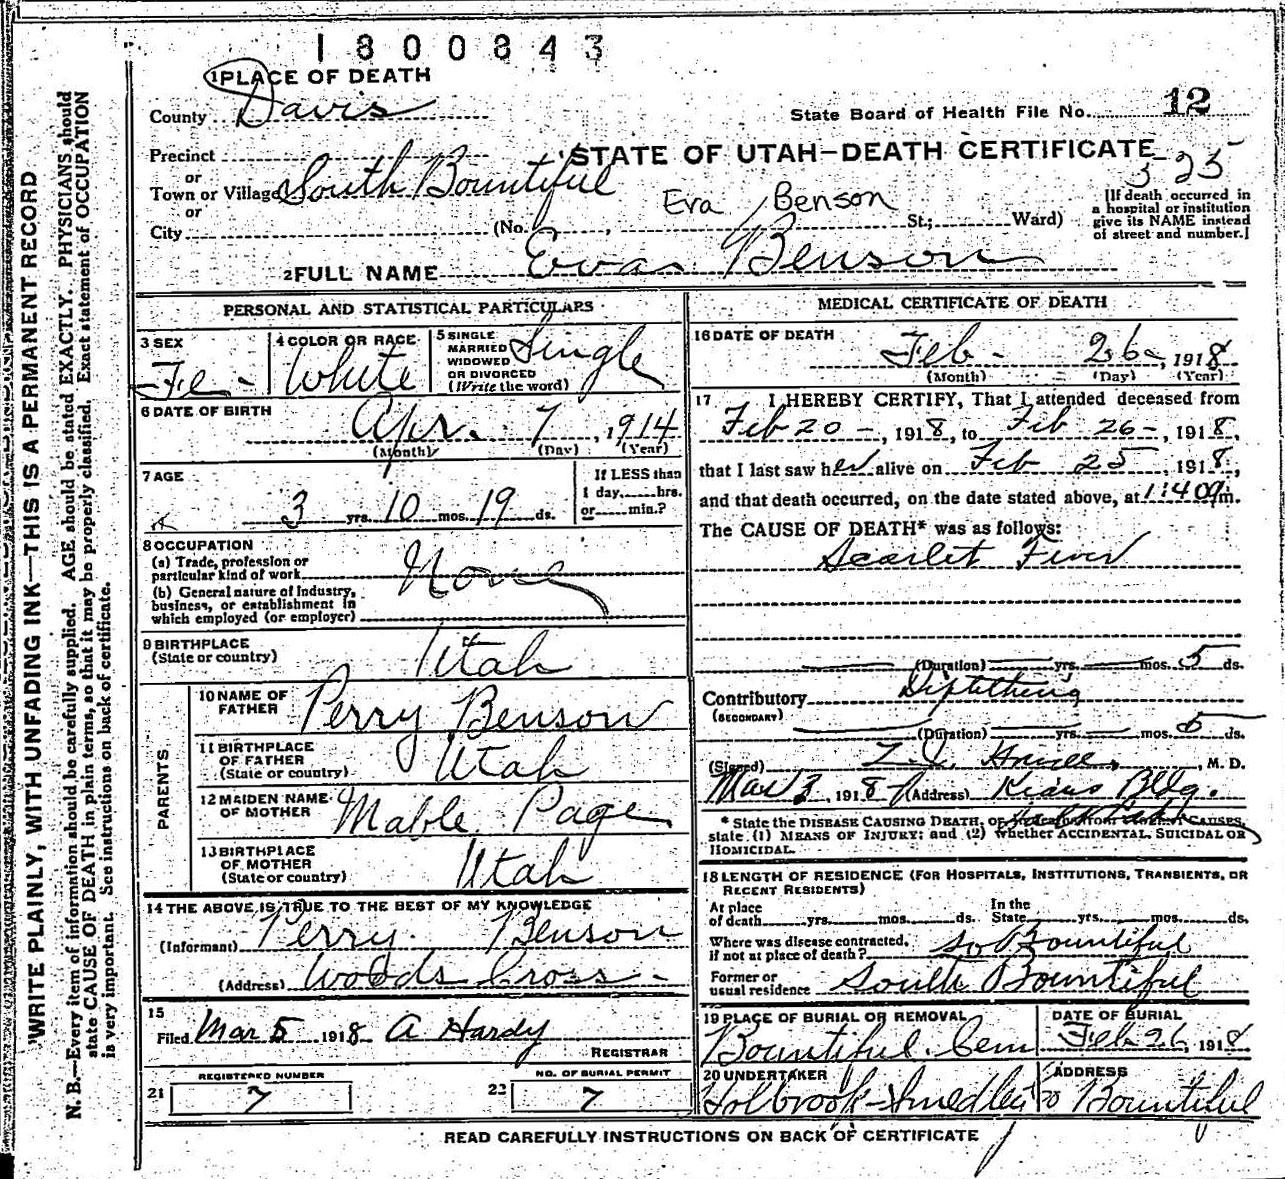 1800843
1 PLACE OF DEATH
County Davis
State Board of Health File No. 12
Precinct
STATE OF UTAH—DEATH CERTIFICATE
or
325
Town or Village South Bountiful
or
Eva Benson
City (No. St.; Ward)
[If death occurred in
a hospital or institution
give its NAME instead
of street and number.]
2 FULL NAME Eva Benson
WRITE PLAINLY, WITH UNFADING INK—THIS IS A PERMANENT RECORD
N. B.—Every item of information should be carefully supplied. AGE should be stated EXACTLY. PHYSICIANS should
state CAUSE OF DEATH in plain terms, so that it may be properly classified. Exact statement of OCCUPATION
is very important. See instructions on back of certificate.
PERSONAL AND STATISTICAL PARTICULARS
3 SEX Fe-
4 COLOR OR RACE White
5 SINGLE
MARRIED
WIDOWED
OR DIVORCED
(Write the word)
Single
6 DATE OF BIRTH
Apr. 7, 1914
(Month) (Day) (Year)
7 AGE
3 yrs. 10 mos. 19 ds.
If LESS than
1 day......hrs.
or......min.?
8 OCCUPATION
(a) Trade, profession or
particular kind of work None
(b) General nature of Industry,
business, or establishment in
which employed (or employer)
9 BIRTHPLACE
(State or country) Utah
PARENTS
10 NAME OF
FATHER Perry Benson
11 BIRTHPLACE
OF FATHER
(State or country) Utah
12 MAIDEN NAME
OF MOTHER Mable Page
13 BIRTHPLACE
OF MOTHER
(State or country) Utah
14 THE ABOVE IS TRUE TO THE BEST OF MY KNOWLEDGE
(Informant) Perry Benson
(Address) Woods Cross-
15
Filed Mar 5 1918 A Hardy
REGISTRAR
REGISTERED NUMBER
21 7
NO. OF BURIAL PERMIT
22 7
MEDICAL CERTIFICATE OF DEATH
16 DATE OF DEATH Feb- 26-, 1918
(Month) (Day) (Year)
17 I HEREBY CERTIFY, That I attended deceased from
Feb 20-, 1918, to Feb 26-, 1918,
that I last saw her alive on Feb 25, 1918,
and that death occurred, on the date stated above, at m.
The CAUSE OF DEATH* was as follows:
Scarlet Fever
(Duration) yrs. mos. 5 ds.
Contributory
(SECONDARY)
(Duration) yrs. mos. 5 ds.
(Signed) , M. D.
Mar 3, 1918 (Address) Bldg.
* State the DISEASE CAUSING DEATH, or CAUSES,
state (1) MEANS OF INJURY; and (2) whether ACCIDENTAL, SUICIDAL OR
HOMICIDAL.
18 LENGTH OF RESIDENCE (FOR HOSPITALS, INSTITUTIONS, TRANSIENTS, OR
RECENT RESIDENTS)
At place
of death yrs. mos. ds.
In the
State yrs. mos. ds.
Where was disease contracted,
if not at place of death? So Bountiful
Former or
usual residence South Bountiful
19 PLACE OF BURIAL OR REMOVAL
Bountiful. Cem
DATE OF BURIAL
Feb 26, 1918
20 UNDERTAKER
Holbrook-Smedley Co
ADDRESS
Bountiful
READ CAREFULLY INSTRUCTIONS ON BACK OF CERTIFICATE